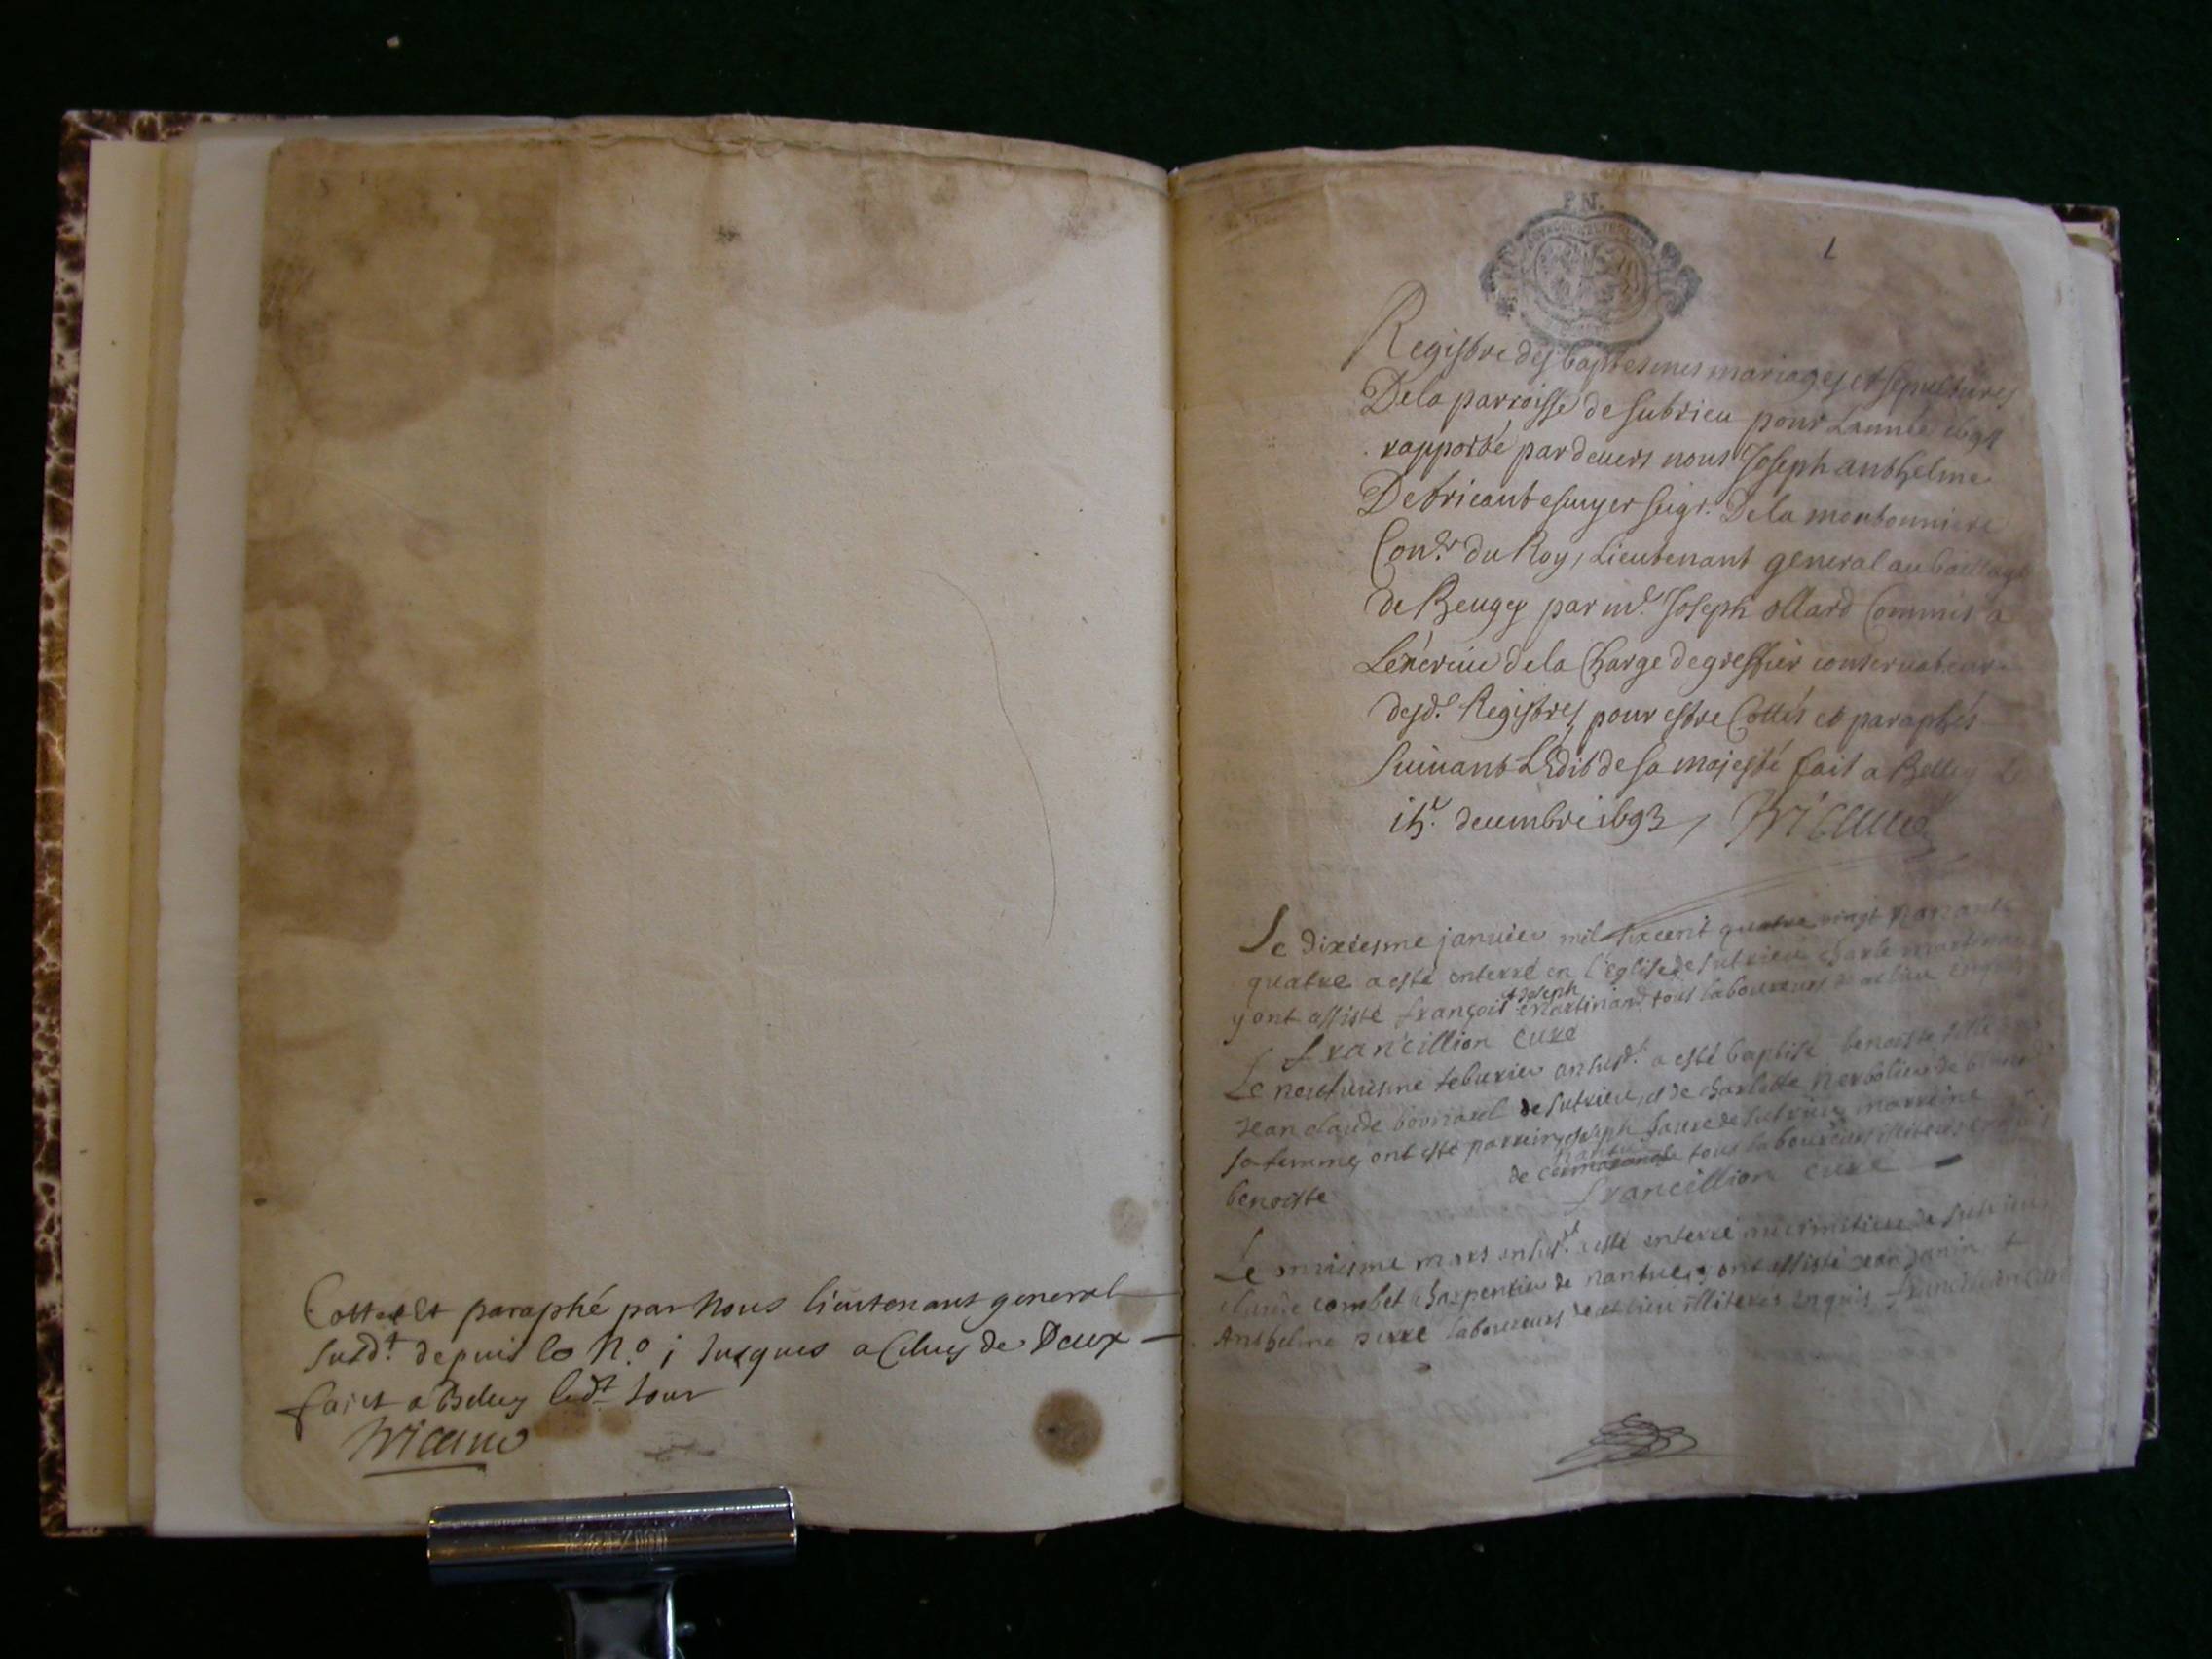 Cottes et paraphé par Nous lieutenant general
susdt. depuis le N.o 1 jusques a Celuy de Deux
fait a Belley ledt. Jour
Tricaud
P.N.
1
Registre des baptesmes mariages et sepultures
De la parroisse de Sutrieu pour L'année 1694
rapporté pardevers nous Joseph anthelme
De tricaut escuyer seigr. De la
Conr. du Roy, Lieutenant general au bailliage
de Beugey par me. Joseph ollard Commis a
L'exercice de la Charge de greffier conservateur
desd. Registres, pour estre Cottés et paraphés
Suivant L'Edit de sa majesté fait a Belley Le
15e. decembre 1693, Tricaud
Le dixiesme janvier mil six cent quatre vingt
quatre a esté enterré en l'eglise de Sutrieu charle
y ont assisté françois & Joseph Martinand tous laboureurs de ce lieu
francillion curé
Le neufviesme febvrier an susdt. a esté baptisé benoiste fille
Jean claude de Sutrieu, et de charlotte
sa femme, ont esté parrein Joseph favre de Sutrieu marreine
benoiste de tous laboureurs
francillion curé
Le mars an susdt. a esté enterré de Sutrieu
claude combet charpentier de nantue, y ont assisté Jean Janin &
Anthelme laboureurs de ce lieu illiteres enquis francillion curé